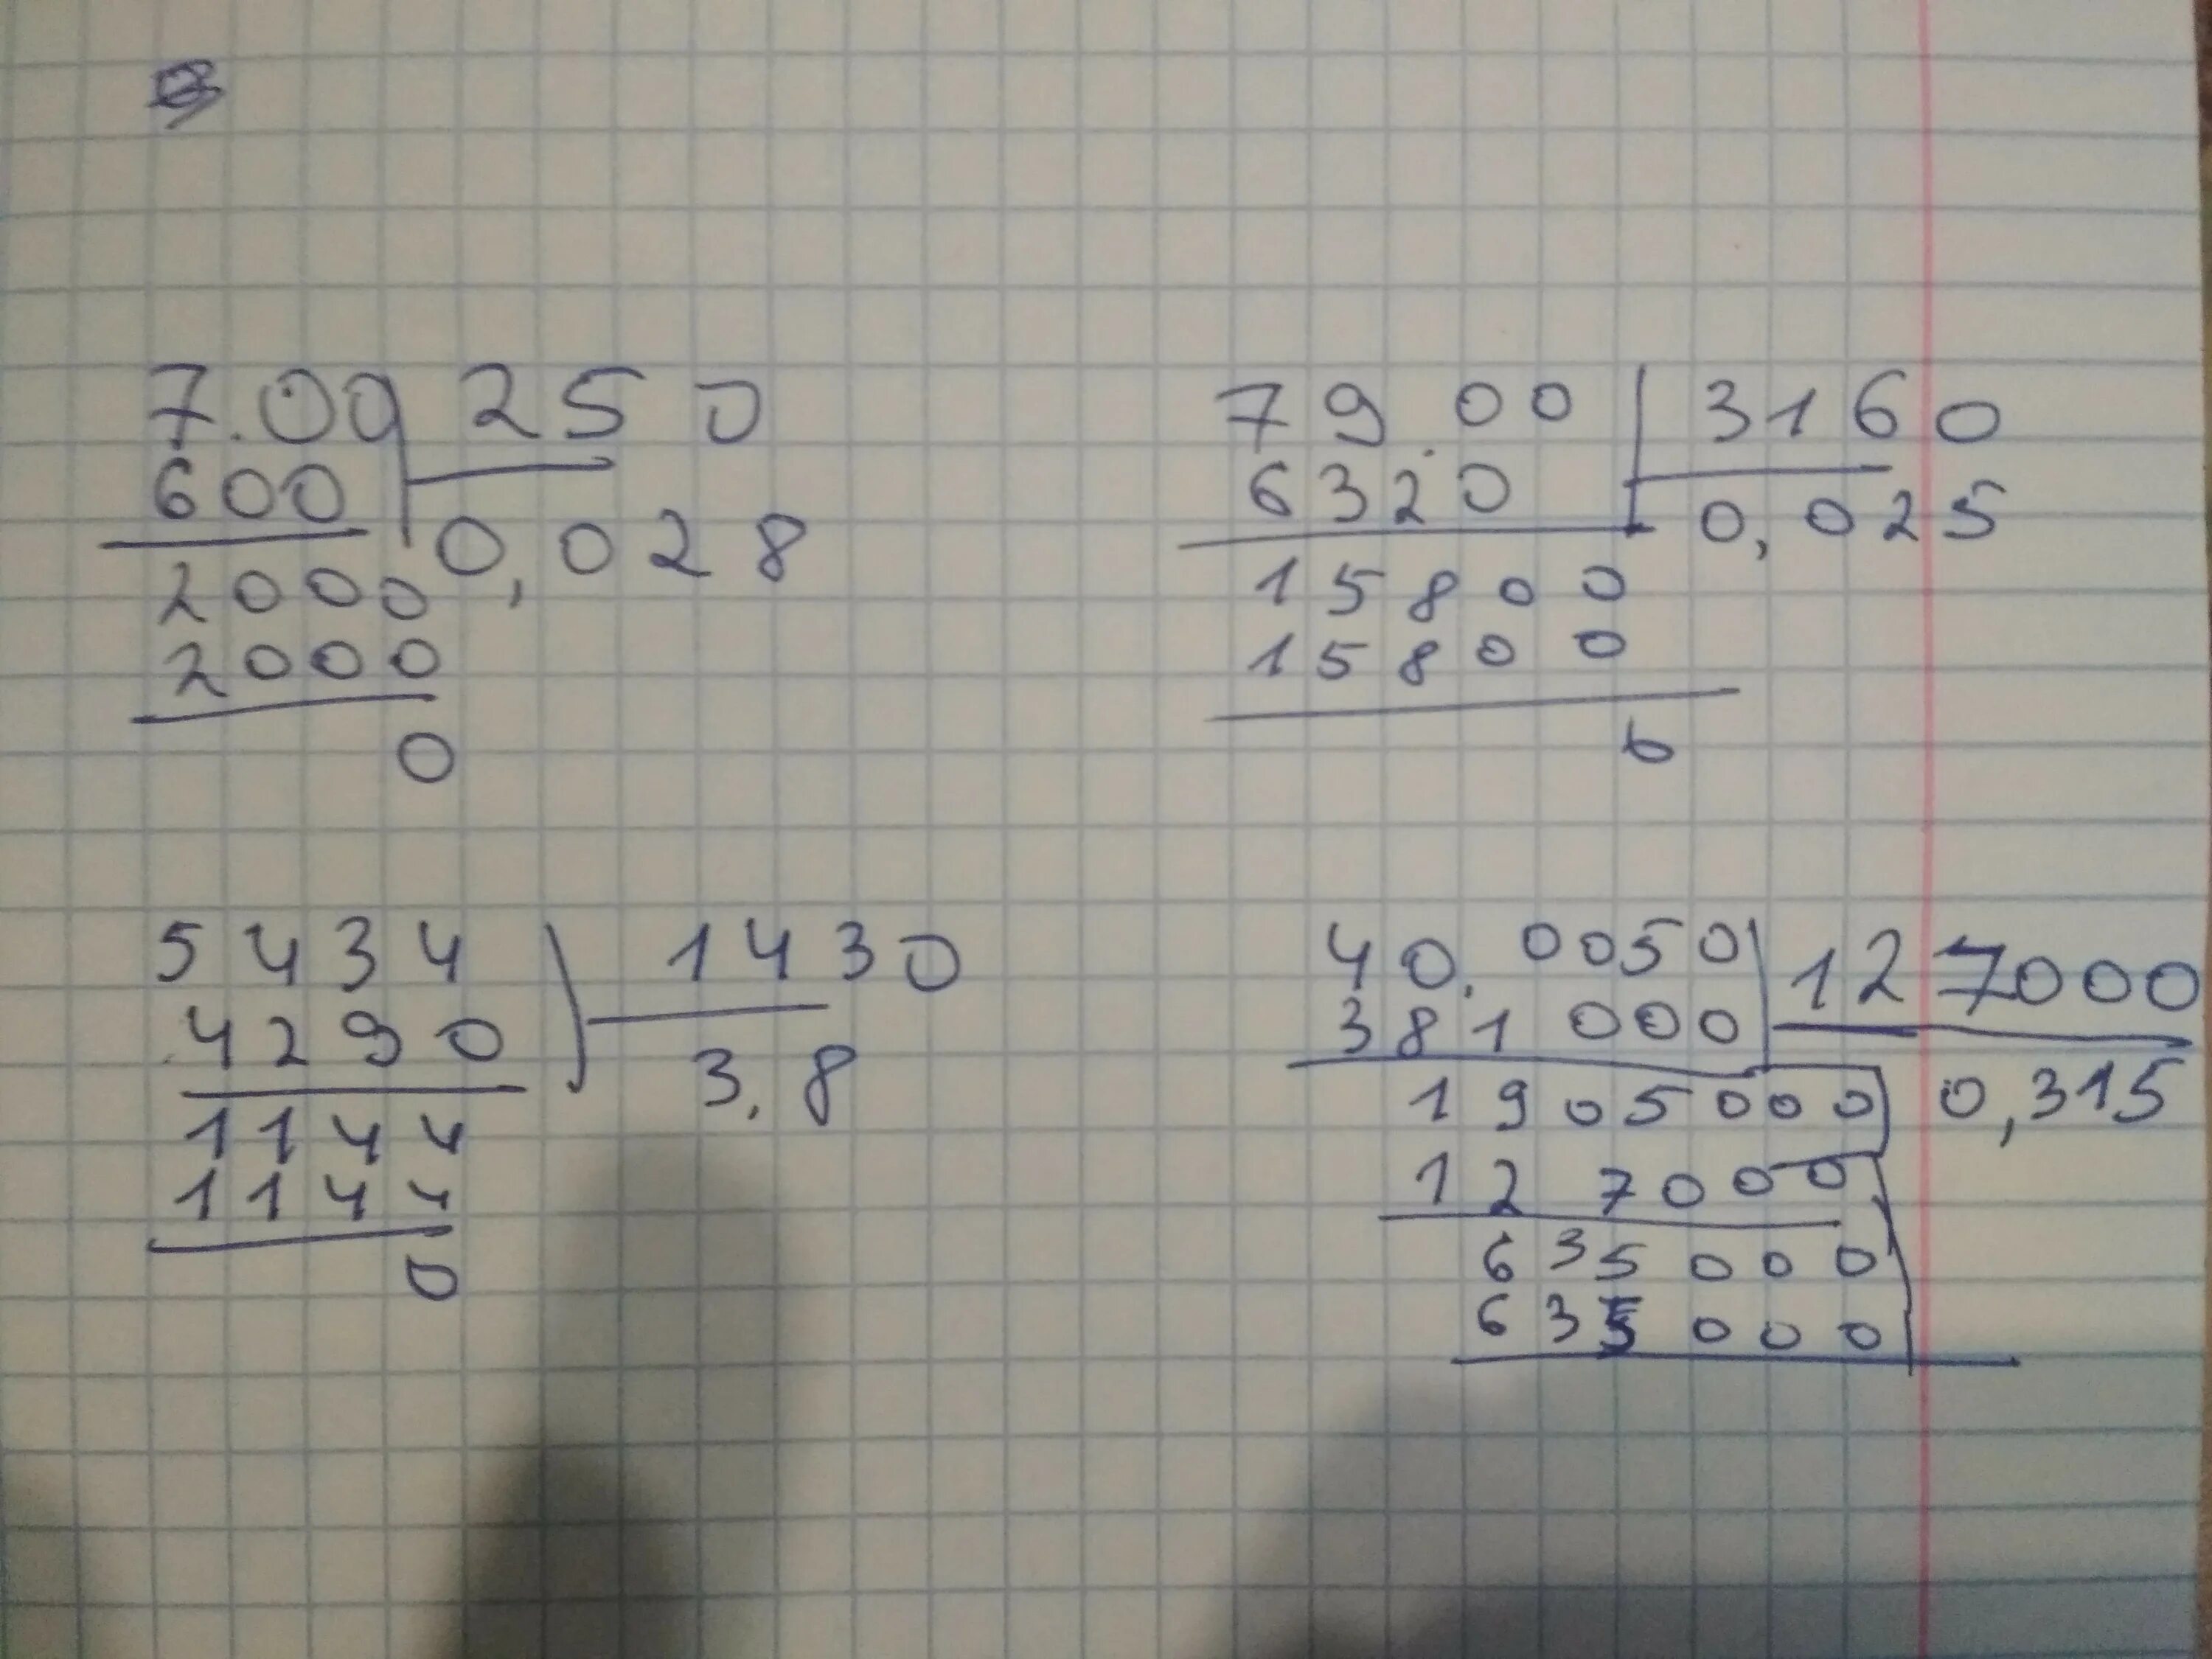 7.00 250
600
0,028
2000
2000
0
79.00 3160
6320
0,025
15800
15800
0
5434 1430
4290
3.8
1144
1144
0
40.0050 127000
381000
1905000 0,315
127000
635000
635000